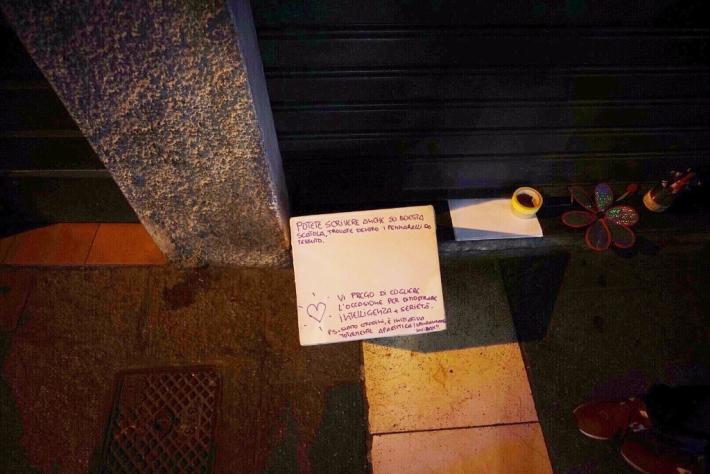 POTETE SCRIVERE ANCHE SU QUESTA
SCATOLA, TROVATE DENTRO I PENNARELLI DA
TESSUTO.
VI PREGO DI COGLIERE
L'OCCASIONE PER DIMOSTRARE
INTELLIGENZA E SERIETÀ.
PS. SIATE È INIZIATIVA
TOTALMENTE APARTITICA